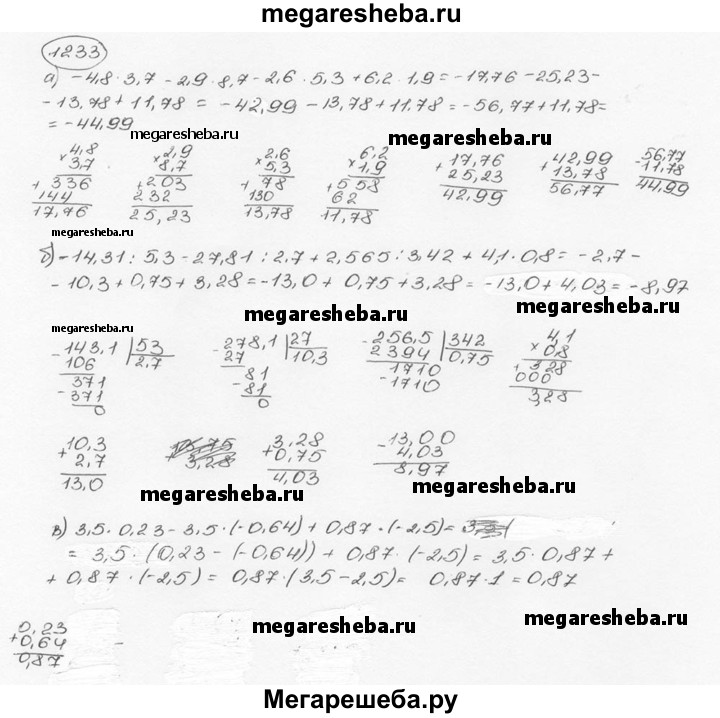 megaresheba.ru
1233
а) -4,8 · 3,7 - 2,9 · 8,7 - 2,6 · 5,3 + 6,2 · 1,9 = -17,76 - 25,23 -
- 13,78 + 11,78 = -42,99 - 13,78 + 11,78 = -56,77 + 11,78 =
= -44,99
megaresheba.ru
megaresheba.ru
× 4,8
3,7
+ 336
144
17,76
× 2,9
8,7
+ 203
232
25,23
× 2,6
5,3
+ 78
130
13,78
× 6,2
1,9
+ 558
62
11,78
+ 17,76
25,23
42,99
+ 42,99
13,78
56,77
- 56,77
11,78
44,99
megaresheba.ru
megaresheba.ru
б) -14,31 : 5,3 - 27,81 : 2,7 + 2,565 : 3,42 + 4,1 · 0,8 = -2,7 -
- 10,3 + 0,75 + 3,28 = -13,0 + 0,75 + 3,28 = -13,0 + 4,03 = -8,97
megaresheba.ru
megaresheba.ru
megaresheba.ru
- 143,1 | 53
106 2,7
371
- 371
0
- 278,1 | 27
27 10,3
81
- 81
0
- 256,5 | 342
2394 0,75
1710
- 1710
4,1
× 0,8
+ 328
000
3,28
+ 10,3
2,7
13,0
3,28
+ 3,28
0,75
4,03
- 13,00
4,03
8,97
megaresheba.ru
megaresheba.ru
в) 3,5 · 0,23 - 3,5 · (-0,64) + 0,87 · (-2,5) =
= 3,5 · (0,23 - (-0,64)) + 0,87 · (-2,5) = 3,5 · 0,87 +
+ 0,87 · (-2,5) = 0,87 · (3,5 - 2,5) = 0,87 · 1 = 0,87
megaresheba.ru
megaresheba.ru
+ 0,23
0,64
0,87
Мегарешеба.ру